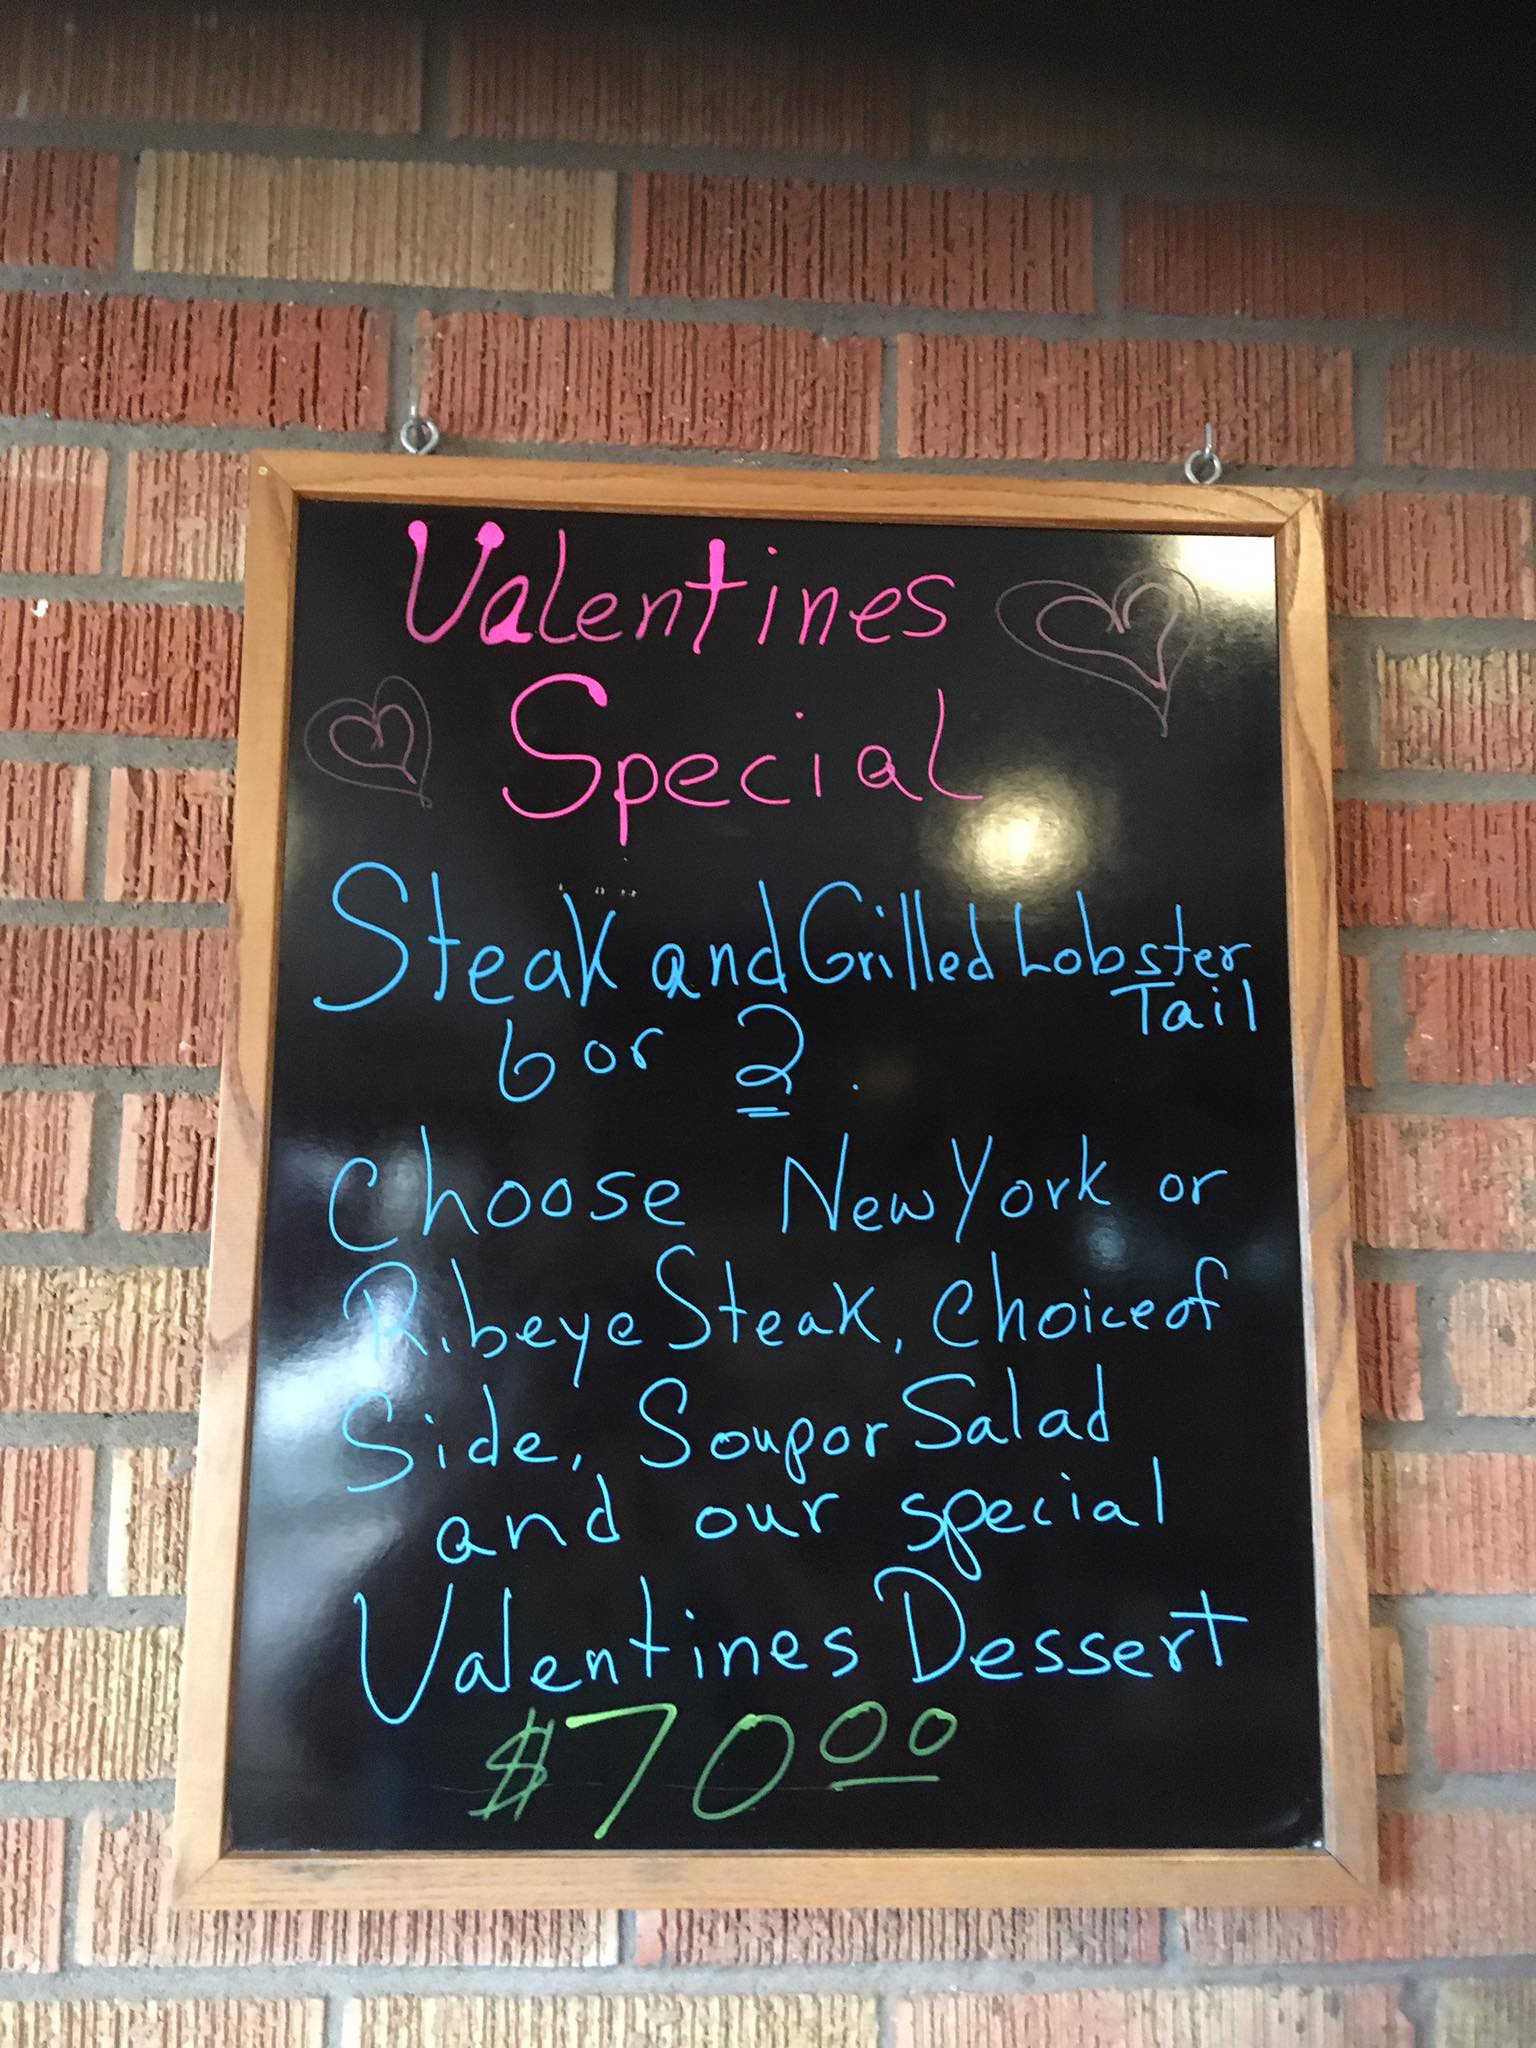 Valentines
Special
Steak and Grilled Lobster
Tail
for 2
Choose New York or
Ribeye Steak, Choice of
Side, Soup or Salad
and our special
Valentines Dessert
$70 00